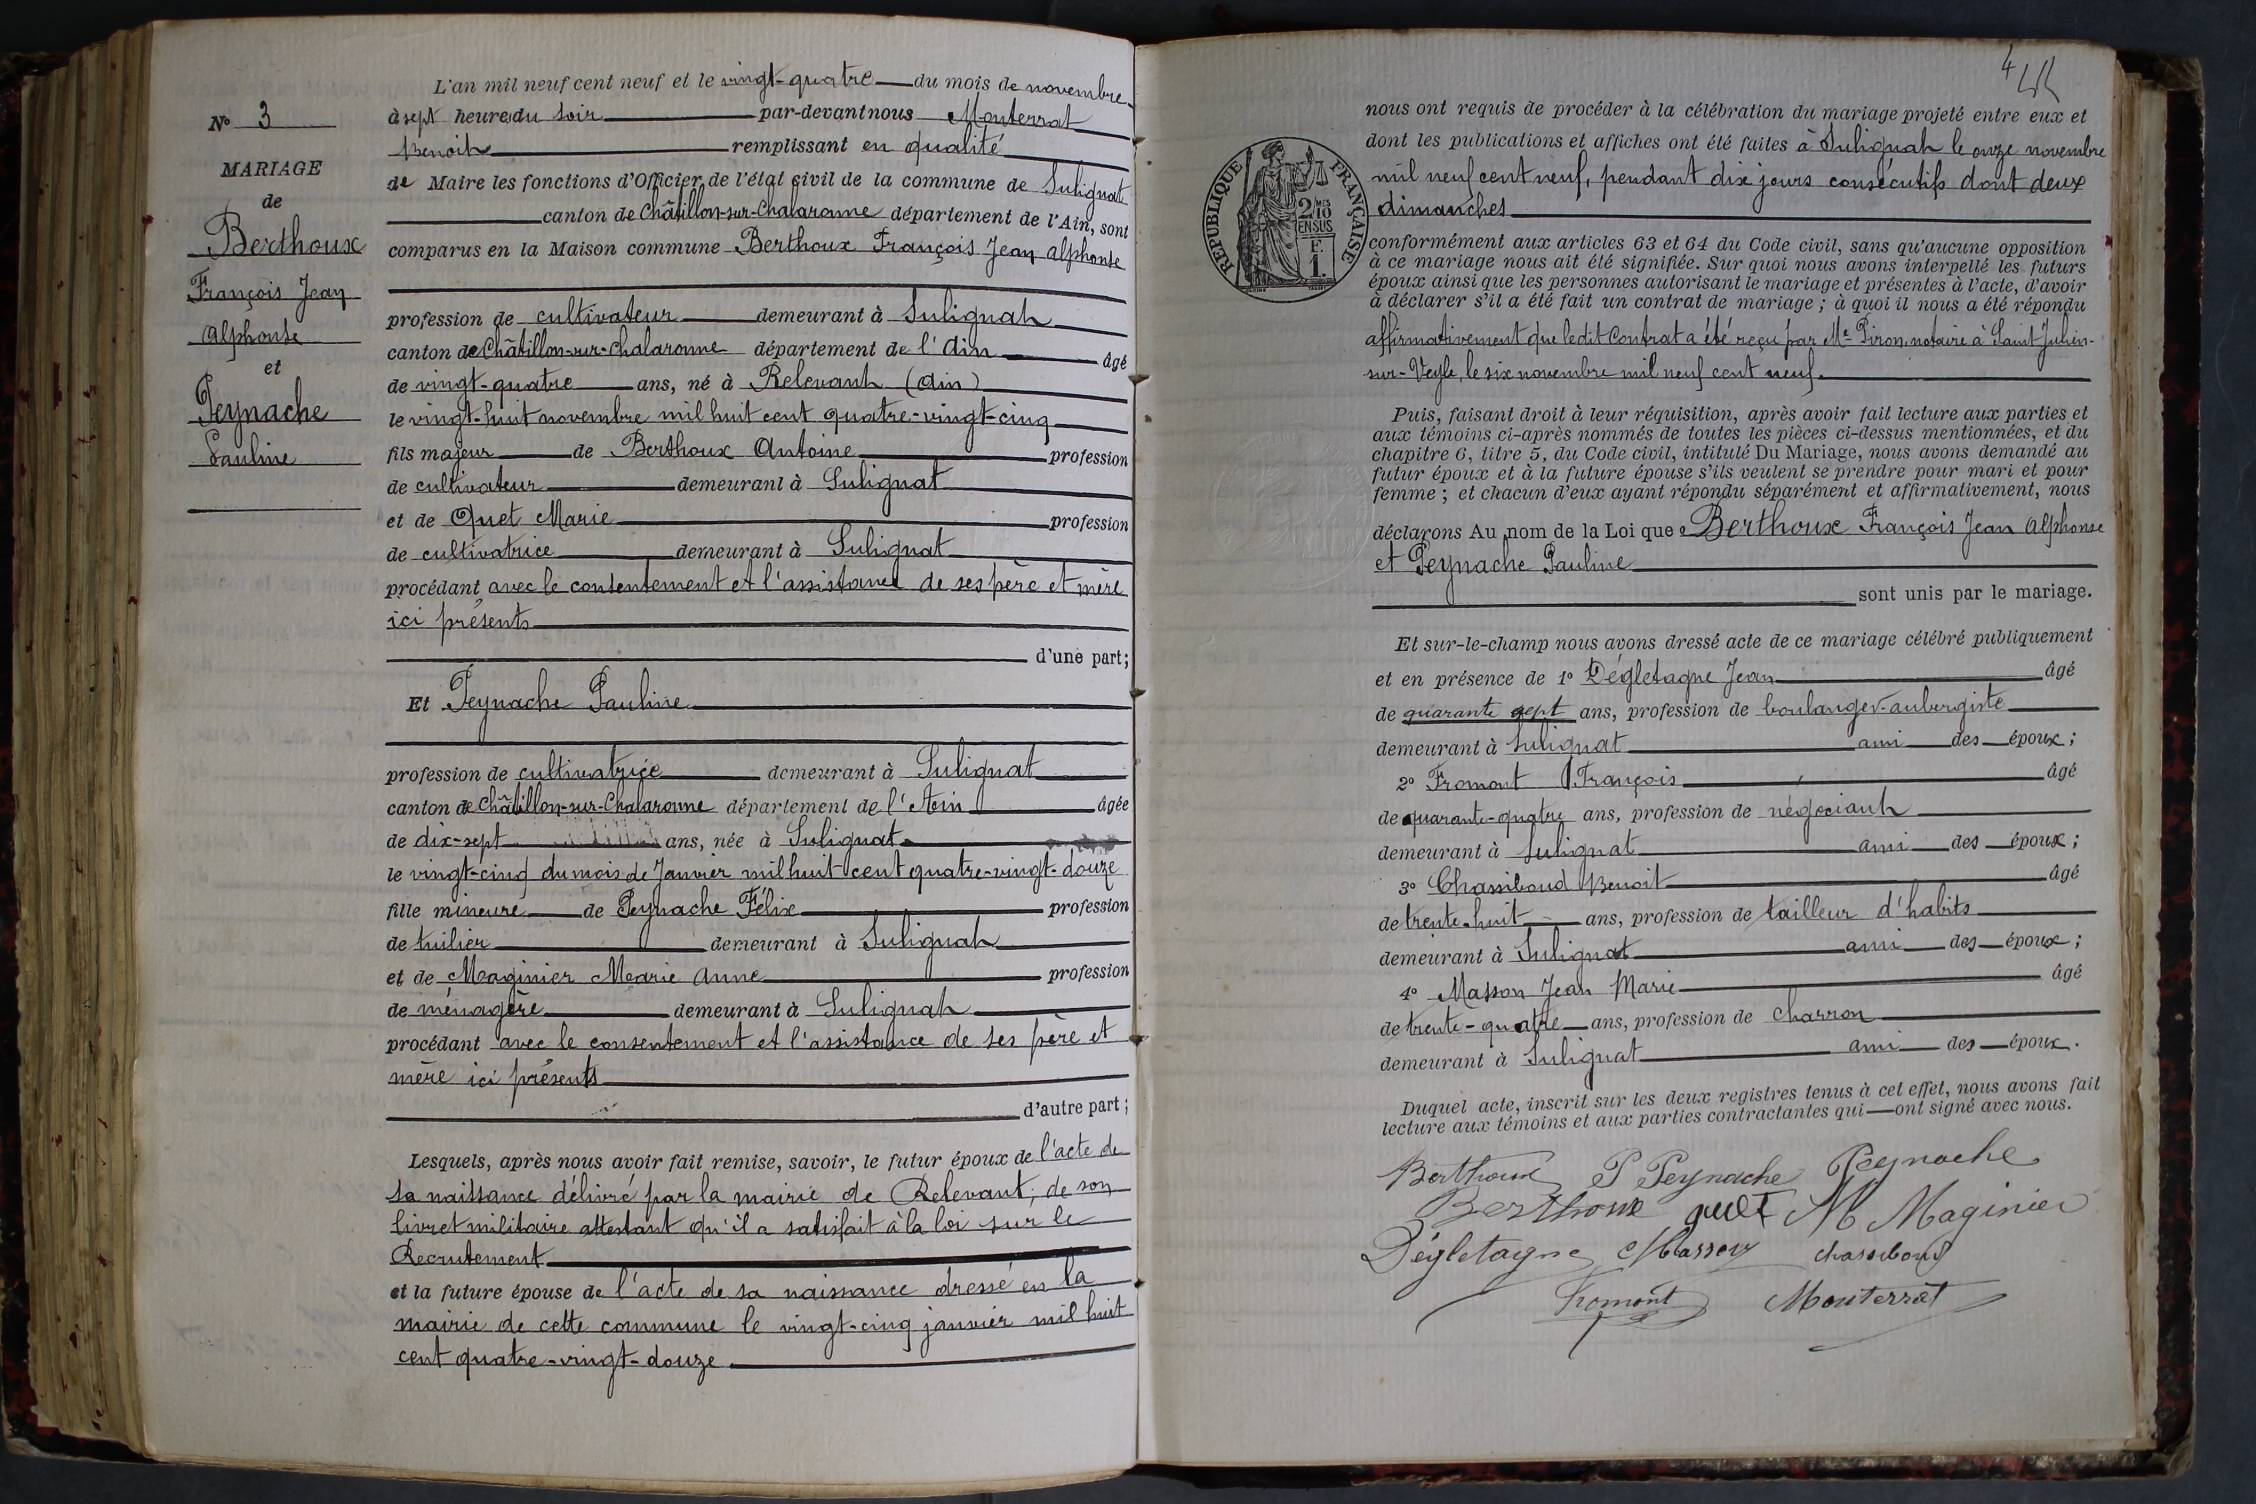 N° 3
MARIAGE
de
Berthoux
François Jean
Alphonse
et
Peynache
Pauline
L'an mil neuf cent neuf et le vingt-quatre du mois de novembre
à sept heures du soir par-devant nous Monterrat
Benoit remplissant en qualité
de Maire les fonctions d'Officier de l'état civil de la commune de Sulignat
canton de Châtillon-sur-Chalaronne département de l'Ain, sont
comparus en la Maison commune Berthoux François Jean Alphonse
profession de cultivateur demeurant à Sulignat
canton de Châtillon-sur-Chalaronne département de l'Ain âgé
de vingt-quatre ans, né à Relevant (Ain)
le vingt-huit novembre mil huit cent quatre-vingt-cinq
fils majeur de Berthoux Antoine profession
de cultivateur demeurant à Sulignat
et de Quet Marie profession
de cultivatrice demeurant à Sulignat
procédant avec le consentement et l'assistance de ses père et mère
ici présents
d'une part;
Et Peynache Pauline
profession de cultivatrice demeurant à Sulignat
canton de Châtillon-sur-Chalaronne département de l'Ain âgée
de dix-sept ans, née à Sulignat
le vingt-cinq du mois de Janvier mil huit cent quatre-vingt-douze
fille mineure de Peynache Félix profession
de tuilier demeurant à Sulignat
et de Maginier Marie Anne profession
de ménagère demeurant à Sulignat
procédant avec le consentement et l'assistance de ses père et
mère ici présents
d'autre part;
Lesquels, après nous avoir fait remise, savoir, le futur époux de l'acte de
sa naissance délivré par la mairie de Relevant; de son
livret militaire attestant qu'il a satisfait à la loi sur le
Recrutement
et la future épouse de l'acte de sa naissance dressé en la
mairie de cette commune le vingt-cinq janvier mil huit
cent quatre-vingt-douze
nous ont requis de procéder à la célébration du mariage projeté entre eux et
dont les publications et affiches ont été faites à Sulignat le onze novembre
mil neuf cent neuf, pendant dix jours consécutifs dont deux
dimanches
RÉPUBLIQUE FRANÇAISE
2/10 MES
EN SUS
F.
1.
conformément aux articles 63 et 64 du Code civil, sans qu'aucune opposition
à ce mariage nous ait été signifiée. Sur quoi nous avons interpellé les futurs
époux ainsi que les personnes autorisant le mariage et présentes à l'acte, d'avoir
à déclarer s'il a été fait un contrat de mariage; à quoi il nous a été répondu
affirmativement que ledit contrat a été reçu par Me Piron, notaire à Saint Julien-
sur-Veyle, le six novembre mil neuf cent neuf.
Puis, faisant droit à leur réquisition, après avoir fait lecture aux parties et
aux témoins ci-après nommés de toutes les pièces ci-dessus mentionnées, et du
chapitre 6, titre 5, du Code civil, intitulé Du Mariage, nous avons demandé au
futur époux et à la future épouse s'ils veulent se prendre pour mari et pour
femme; et chacun d'eux ayant répondu séparément et affirmativement, nous
déclarons Au nom de la Loi que Berthoux François Jean Alphonse
et Peynache Pauline
sont unis par le mariage.
Et sur-le-champ nous avons dressé acte de ce mariage célébré publiquement
et en présence de 1° Dégletagne Jean âgé
de quarante sept ans, profession de boulanger-aubergiste
demeurant à Sulignat ami des époux;
2° Fromont François âgé
de quarante-quatre ans, profession de négociant
demeurant à Sulignat ami des époux;
3° Chassiboud Benoit âgé
de trente-huit ans, profession de tailleur d'habits
demeurant à Sulignat ami des époux;
4° Masson Jean Marie âgé
de trente-quatre ans, profession de charron
demeurant à Sulignat ami des époux.
Duquel acte, inscrit sur les deux registres tenus à cet effet, nous avons fait
lecture aux témoins et aux parties contractantes qui ont signé avec nous.
Berthoux P Peynache Peynache
Berthoux M Maginier
Dégletagne Masson chassiboud
Fromont Monterrat